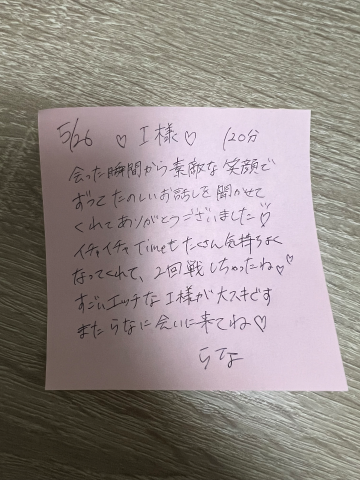 5/26 ♡ I様♡ 120分
会った瞬間から素敵な笑顔で
ずっとたのしいお話しを聞かせて
くれてありがとうございました♡
イチャイチャTimeもたくさん気持ちよく
なってくれて、2回戦しちゃったね♡♡
すごいエッチなI様が大スキです
またらなに会いに来てね♡
らな